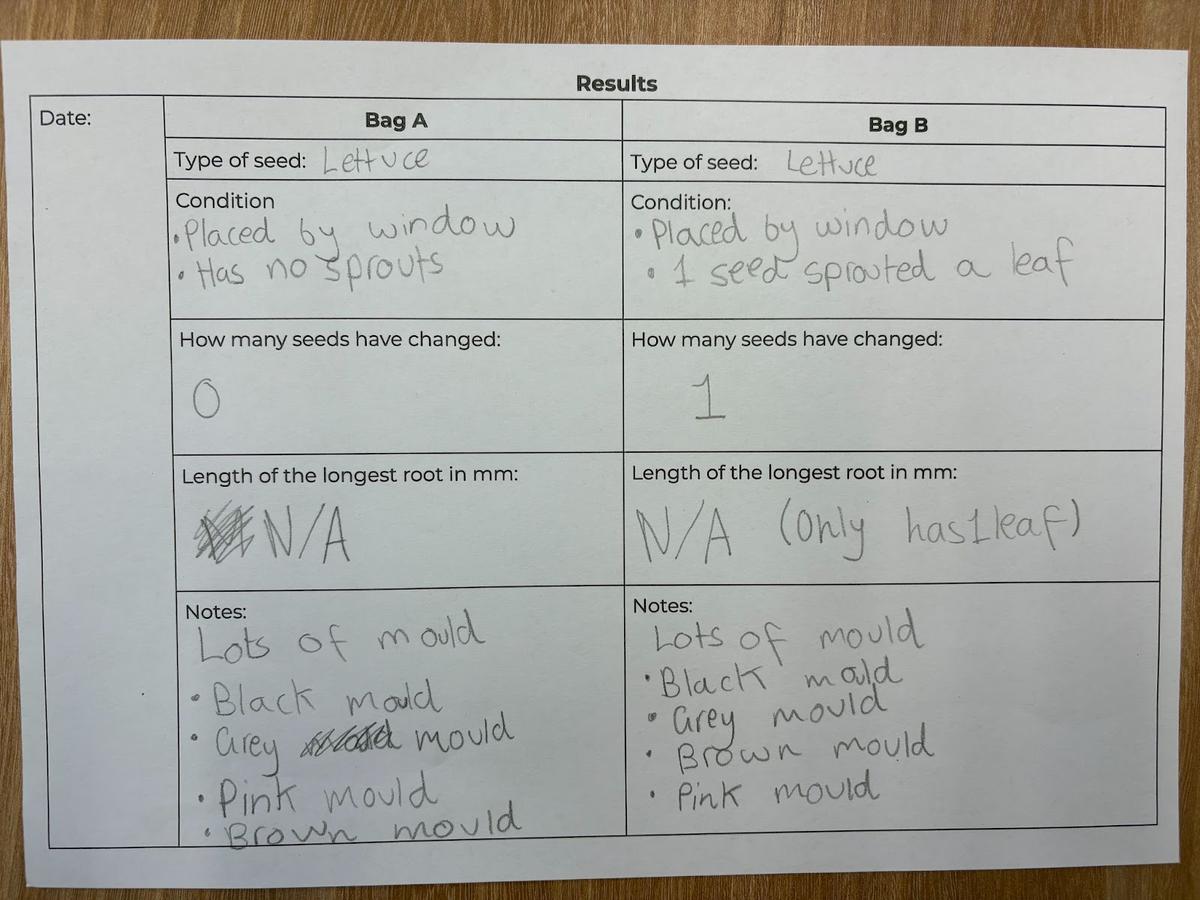 Results
Date:
Bag A
Type of seed: Lettuce
Condition
• Placed by window
• Has no sprouts
How many seeds have changed:
0
Length of the longest root in mm:
N/A
Notes:
Lots of mould
• Black mould
• Grey mould
• Pink mould
• Brown mould
Bag B
Type of seed: Lettuce
Condition:
• Placed by window
• 1 seed sprouted a leaf
How many seeds have changed:
1
Length of the longest root in mm:
N/A (Only has 1 leaf)
Notes:
Lots of mould
• Black mould
• Grey mould
• Brown mould
• Pink mould